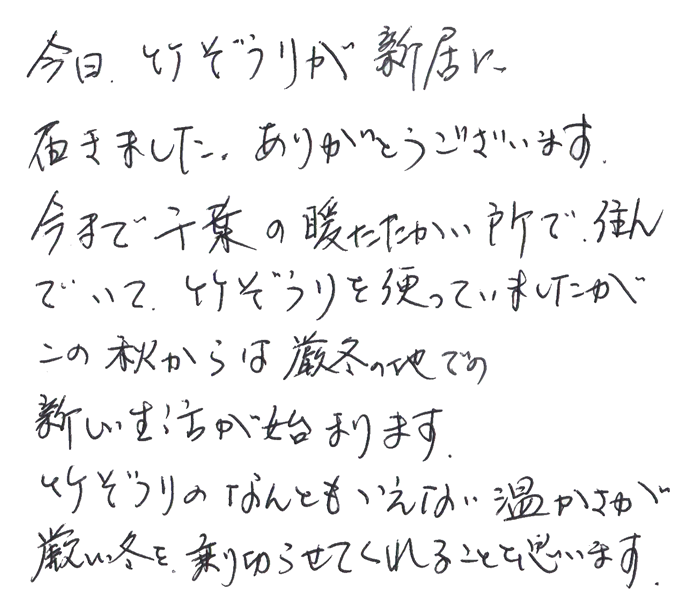 今日、竹ぞうりが新居に
届きました。ありがとうございます。
今まで千葉の暖たたかい所で、住ん
でいて、竹ぞうりを使っていましたが
この秋からは厳冬の地での
新しい生活が始まります。
竹ぞうりのなんともいえない温かさが
厳しい冬を、乗り切らせてくれることと思います。